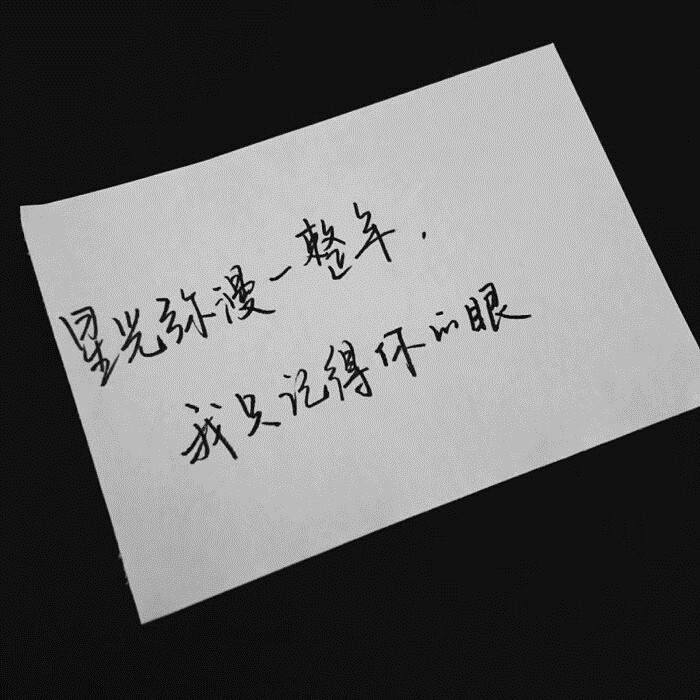 星光弥漫一整年，
我只记得你的眼